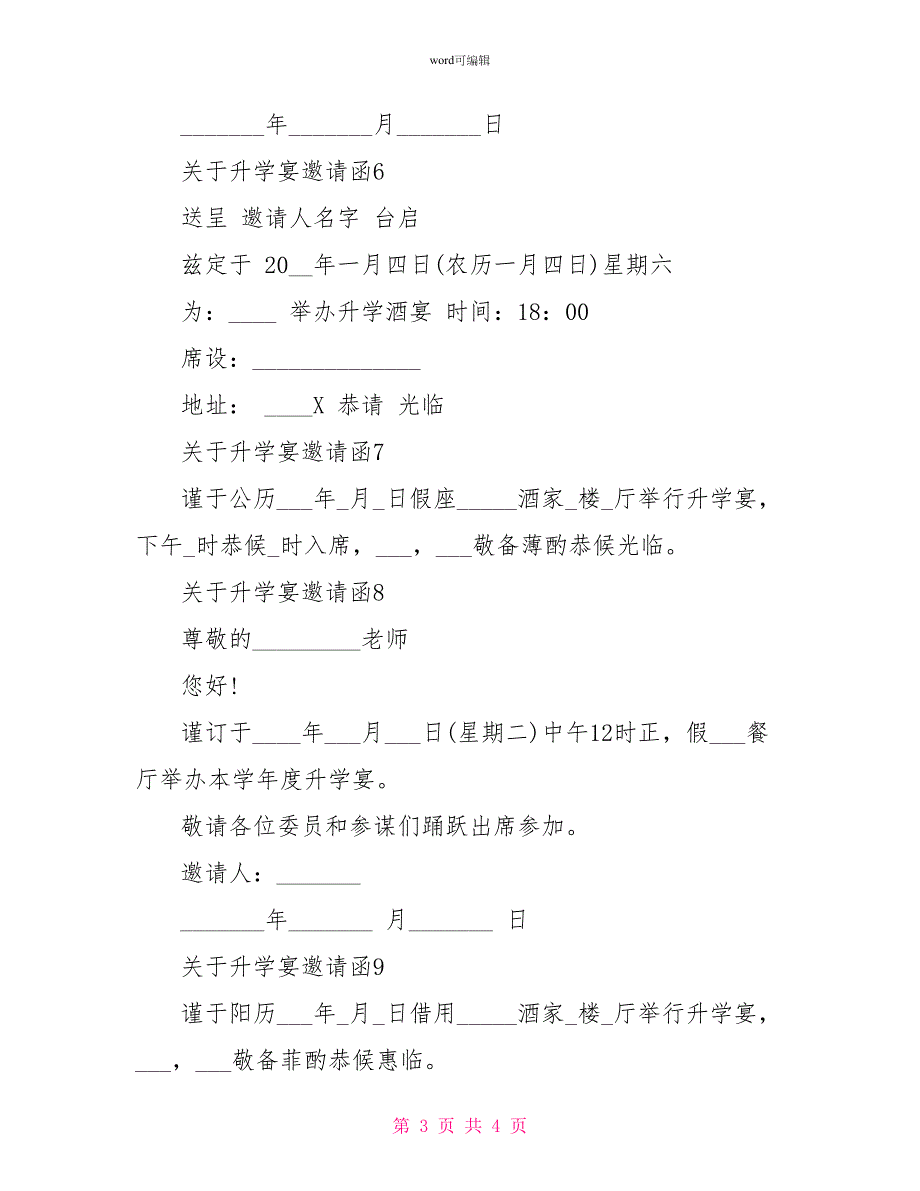 word可编辑
_______年_______月_______日
关于升学宴邀请函6
送呈 邀请人名字 台启
兹定于 20__年一月四日(农历一月四日)星期六
为：____ 举办升学酒宴 时间：18：00
席设：______________
地址： ____X 恭请 光临
关于升学宴邀请函7
谨于公历___年_月_日假座_____酒家_楼_厅举行升学宴，
下午_时恭候_时入席，___，___敬备薄酌恭候光临。
关于升学宴邀请函8
尊敬的_________老师
您好!
谨订于____年___月___日(星期二)中午12时正，假___餐
厅举办本学年度升学宴。
敬请各位委员和参谋们踊跃出席参加。
邀请人：_______
_______年_______ 月_______ 日
关于升学宴邀请函9
谨于阳历___年_月_日借用_____酒家_楼_厅举行升学宴，
___，___敬备菲酌恭候惠临。
第 3 页 共 4 页